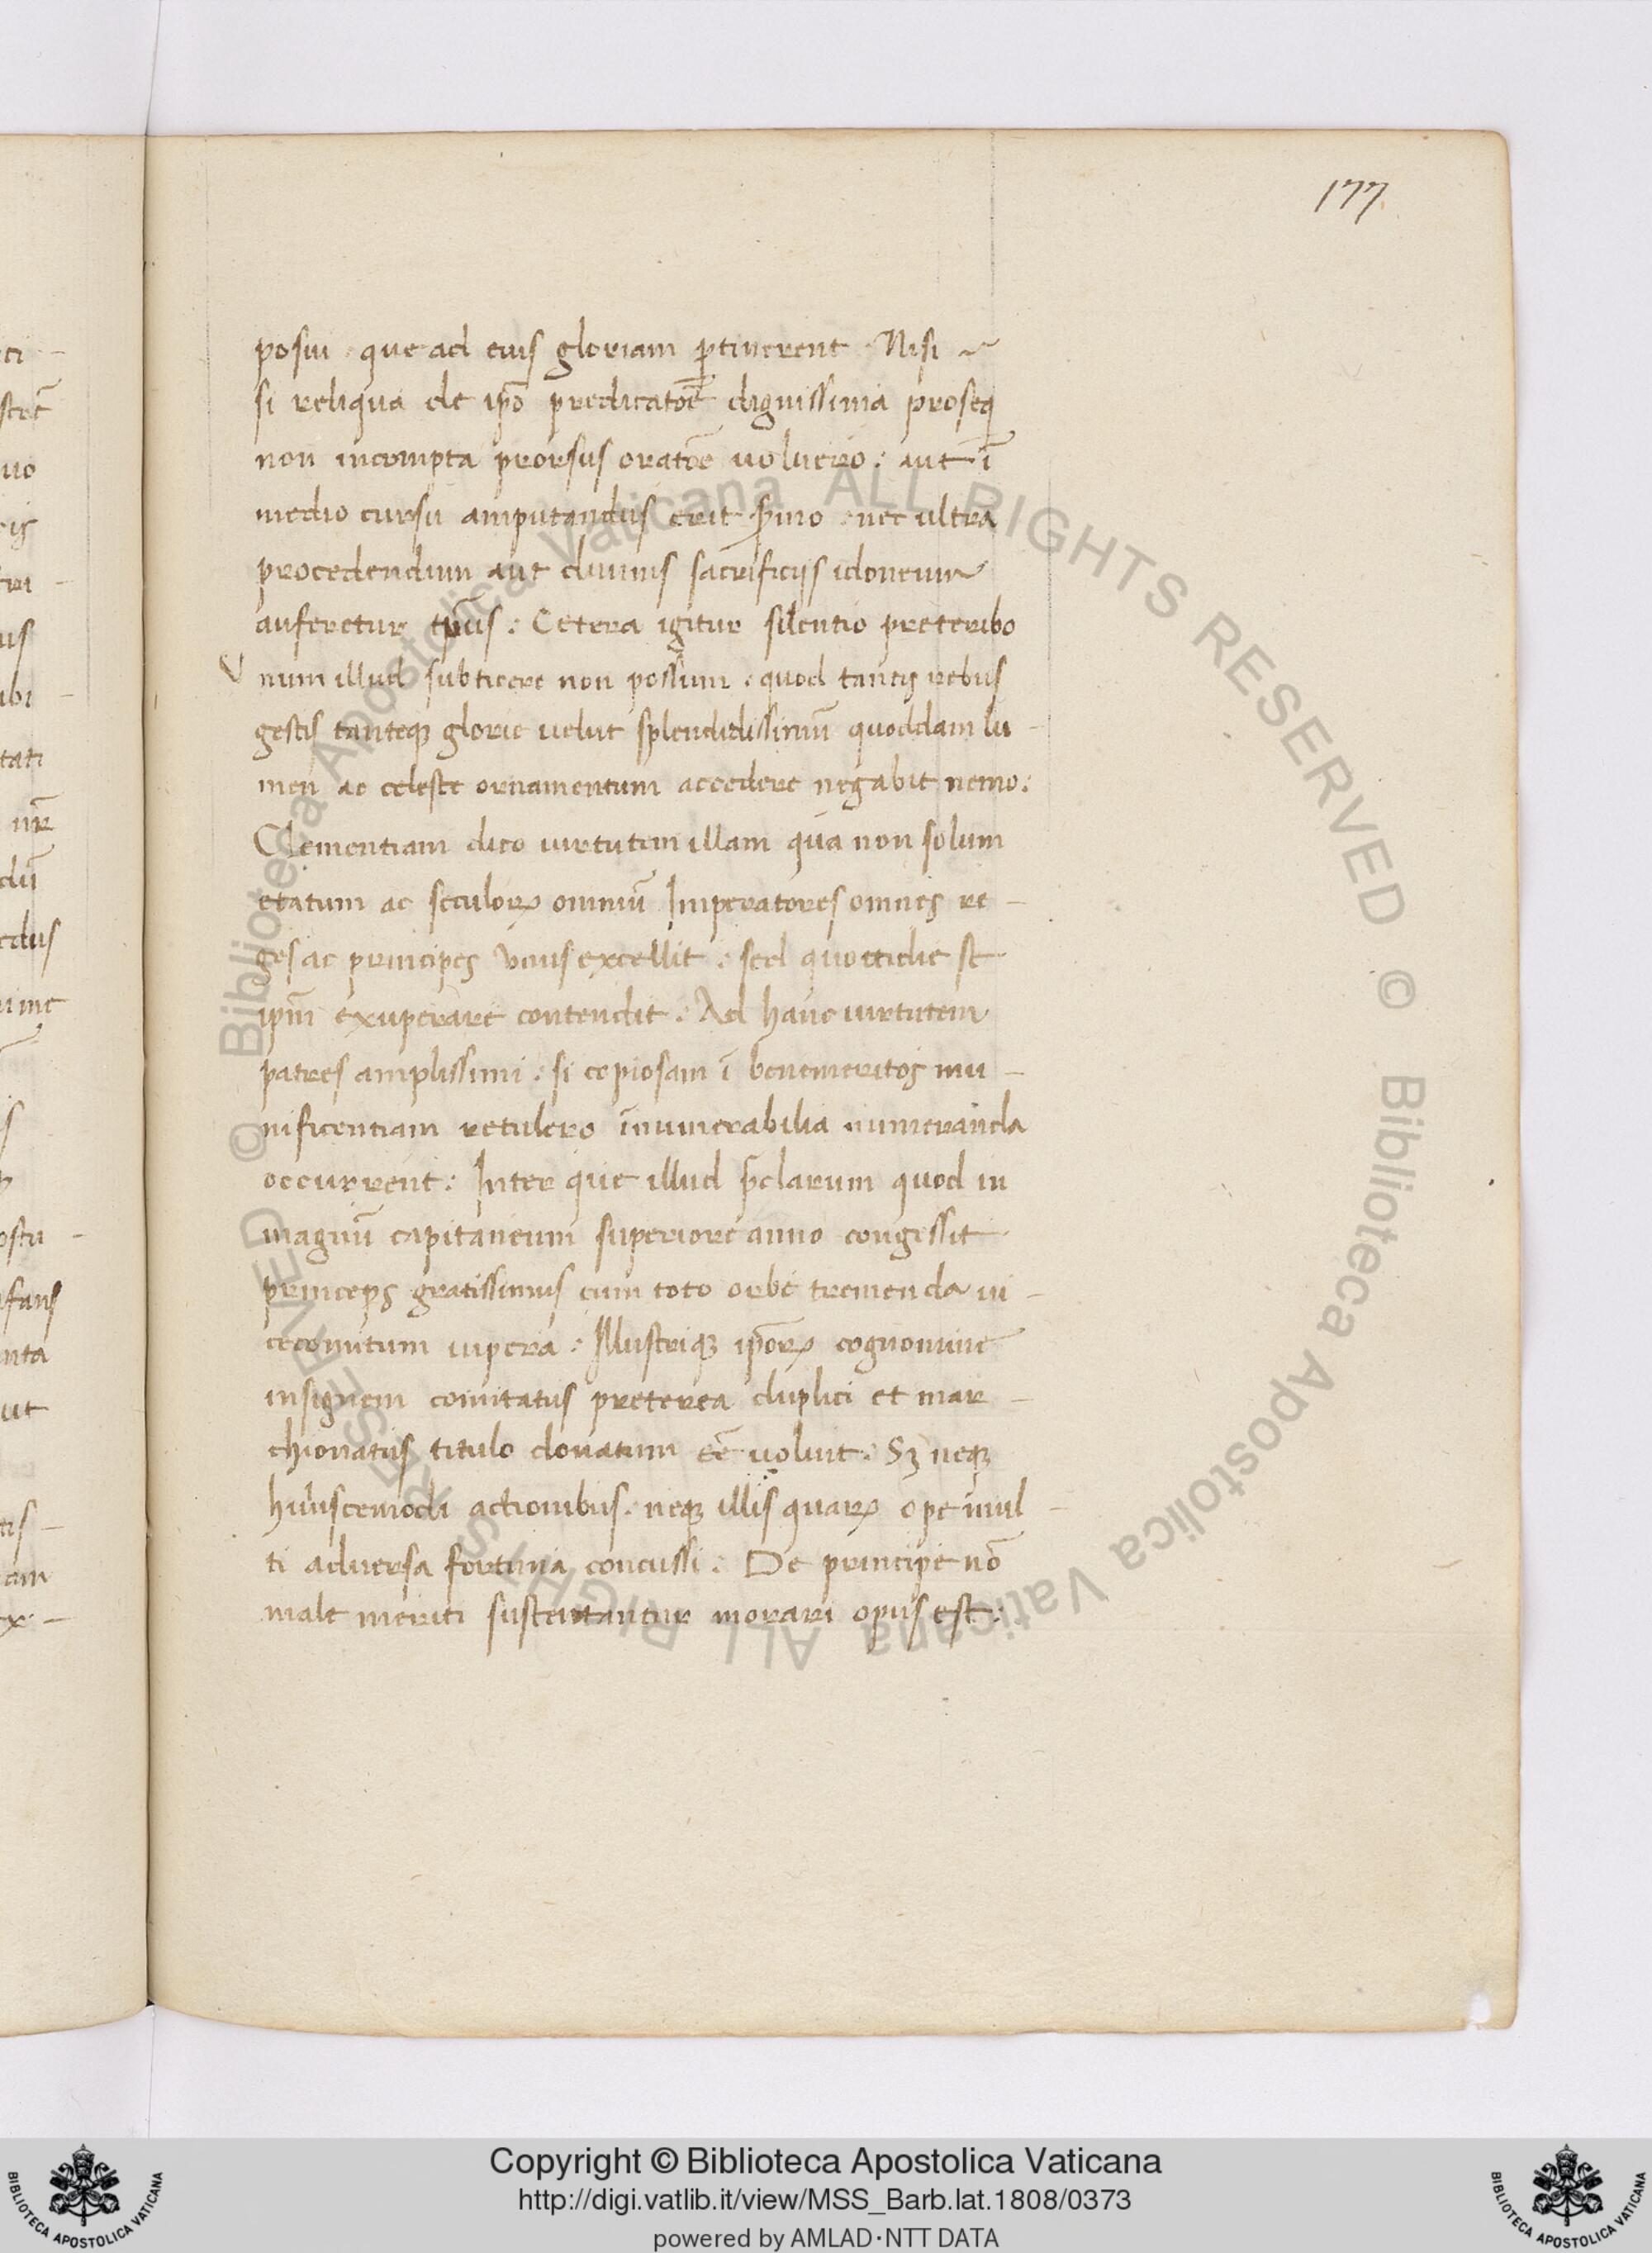 177
posui · que ad eius gloriam ꝑtinerent · Nisi ~
si reliqua de ip̄o predicatōe dignissima proseq
non incompta prorsus oratōe uoluero : aut ī
medio cursu amputandus erit ẜmo · nec ultra
procedendum aut diuinis sacrificijs idoneum
auferetur tp̄us : Cetera igitur silentio preteribo
V num illud subticere non possum · quod tantis rebus
gestis tanteqꝫ glorie uelut splendidissimū quoddam lu -
men ac celeste ornamentum accedere negabit nemo :
Clementiam dico uirtutem illam qua non solum
etatum ac seculoꝝ omniū Imperatores omnes re -
ges ac principes unus excellit : sed quottidie se
ip̄m exuperare contendit : Ad hanc uirtutem
patres amplissimi : si copiosam ī benemeritos mu -
nificentiam retulero īnumerabilia numeranda
occurrent : Inter que illud p̄clarum quod in
magnū capitaneum superiore anno congessit
princeps gratissimus cum toto orbe tremenda ui -
cecomitum uipera : Illustriqꝫ ip̄oꝝ cognomine
insignem comitatus preterea duplici et mar -
chionatus titulo donatum eē uoluit : Sꝫ neqꝫ
huiuscemodi actionibus · neqꝫ illis quaꝝ ope mul -
ti aduersa fortuna concussi : De principe nō
male meriti sustentantur morari opus est :
© Biblioteca Apostolica Vaticana ALL RIGHTS RESERVED © Biblioteca Apostolica Vaticana ALL RIGHTS RESERVED
Copyright © Biblioteca Apostolica Vaticana
http://digi.vatlib.it/view/MSS_Barb.lat.1808/0373
powered by AMLAD·NTT DATA
BIBLIOTECA APOSTOLICA VATICANA
BIBLIOTECA APOSTOLICA VATICANA